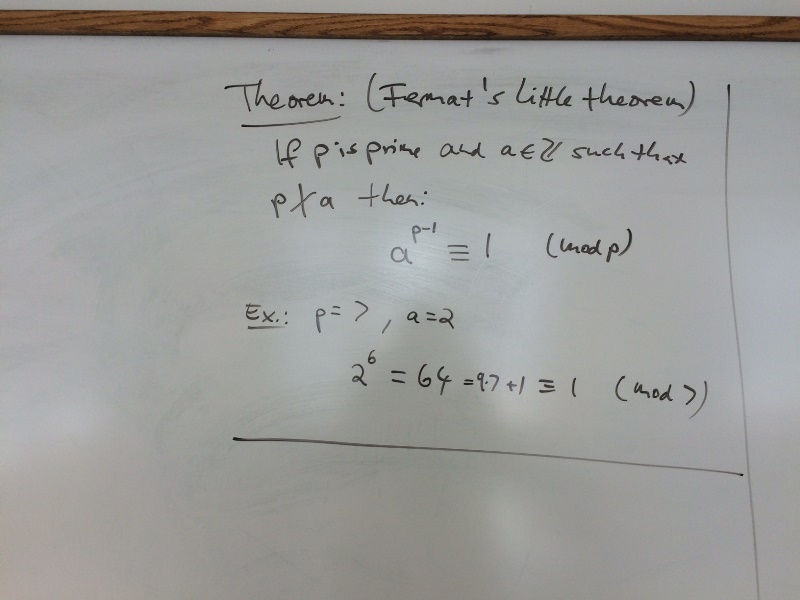 Theorem: (Fermat's little theorem)
If p is prime and a ∈ ℤ such that
p ∤ a then:
a^{p-1} ≡ 1 (mod p)
Ex.: p = 7, a = 2
2^6 = 64 = 9·7 + 1 ≡ 1 (mod 7)